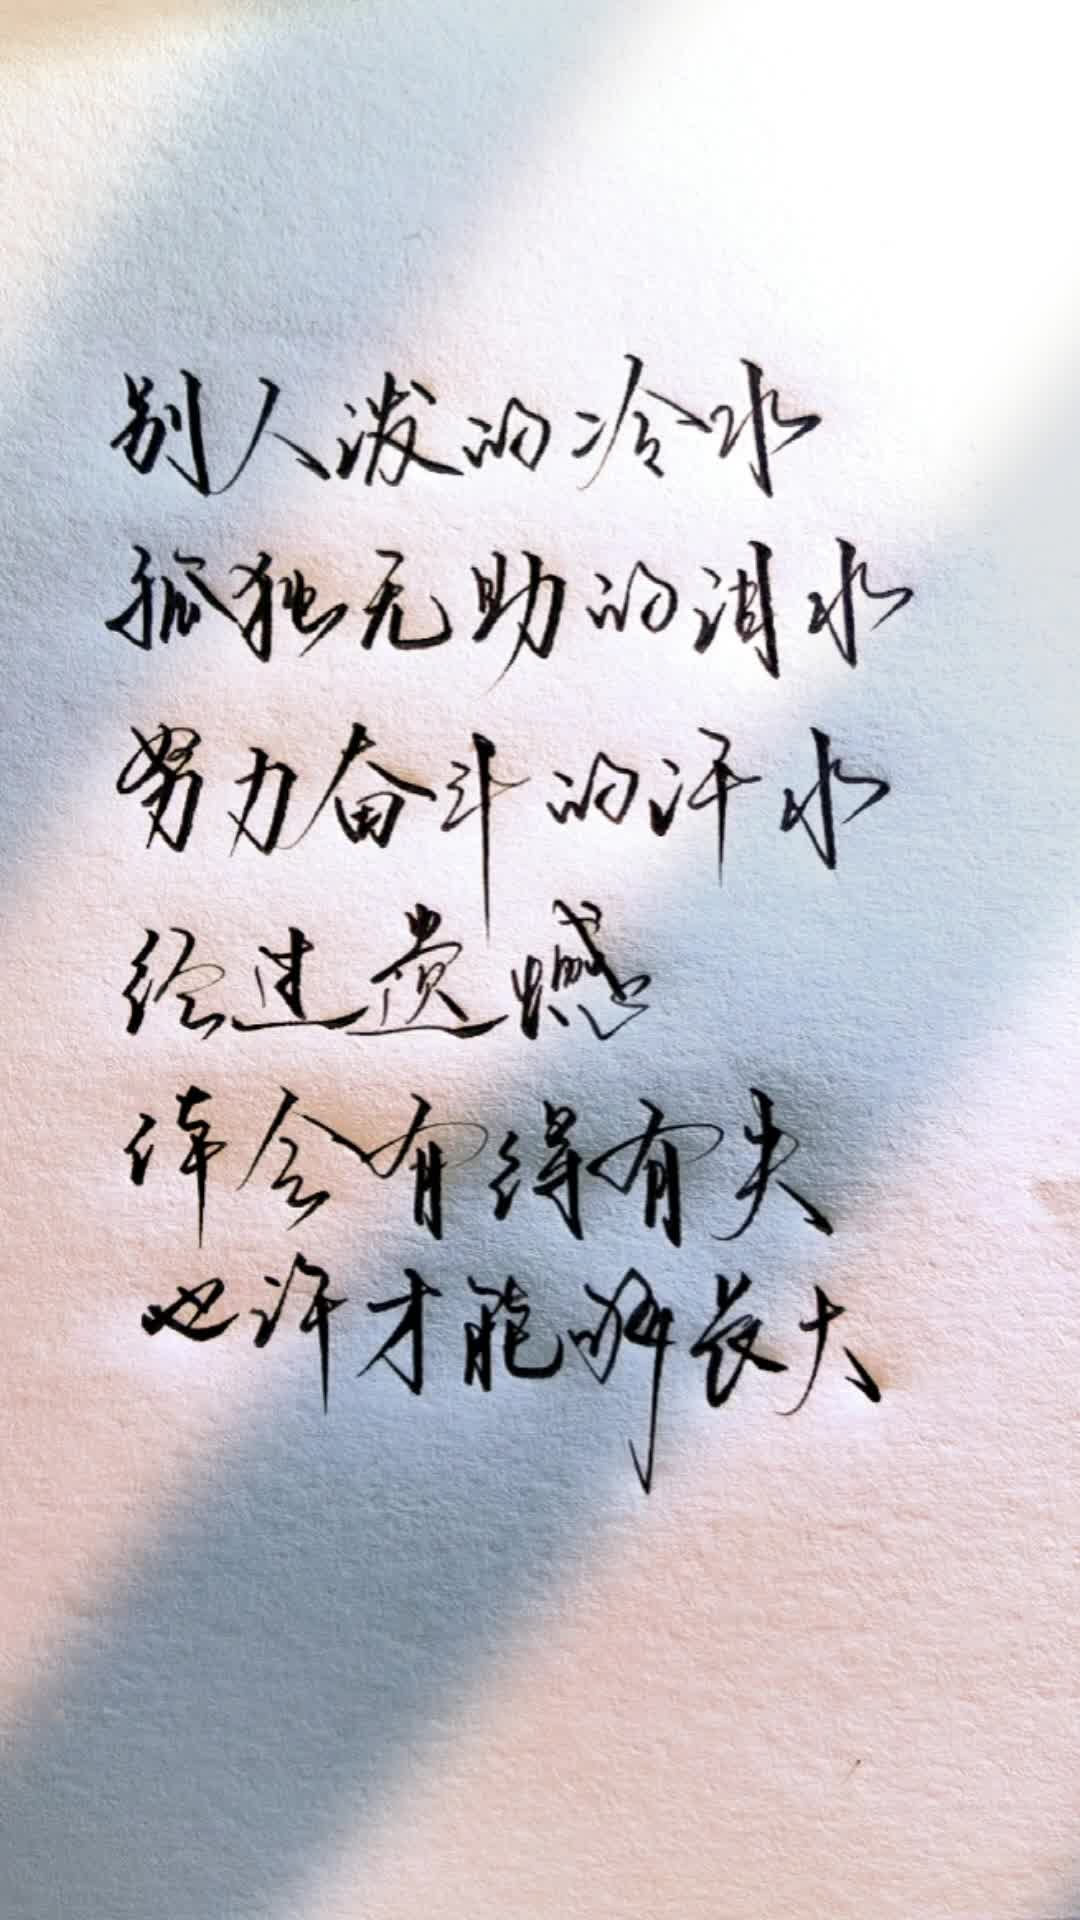 别人泼的冷水
孤独无助的泪水
努力奋斗的汗水
经过遗憾
体会有得有失
也许才能够长大